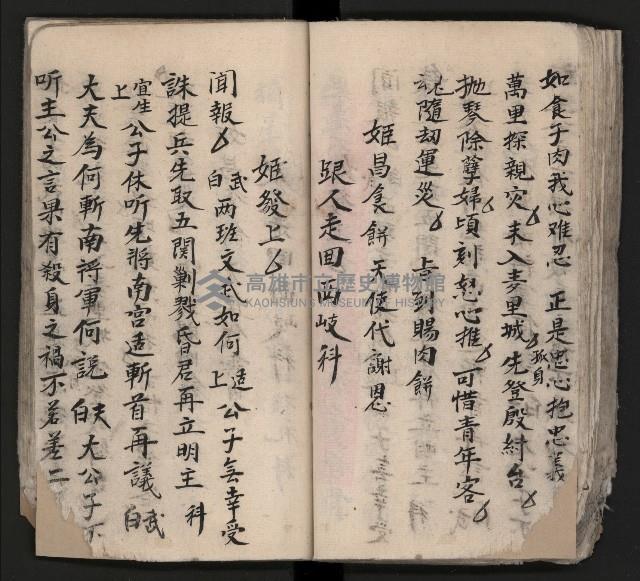 如食子肉我心难忍 正是忠心抱忠義
萬里探親灾 未入羑里城 孤身先登殷紂台
抛琴除孽婦 頃刻怒心推 可惜青年客
魂隨劫運災 上 聖賜肉餅
姬昌食餅 天使代謝恩
跟人走回西岐科
姬發上
闻報 武白 两班文武如何 适上 公子無幸受
誅提兵先取五関剿戮昏君再立明主 科
宜生上 公子休听先將南宫适斬首再議 武白
大夫為何斬南将軍何説 夫白 大公子不
听主公之言果有殺身之禍不若差二
高雄市立歷史博物館
KAOHSIUNG MUSEUM OF HISTORY